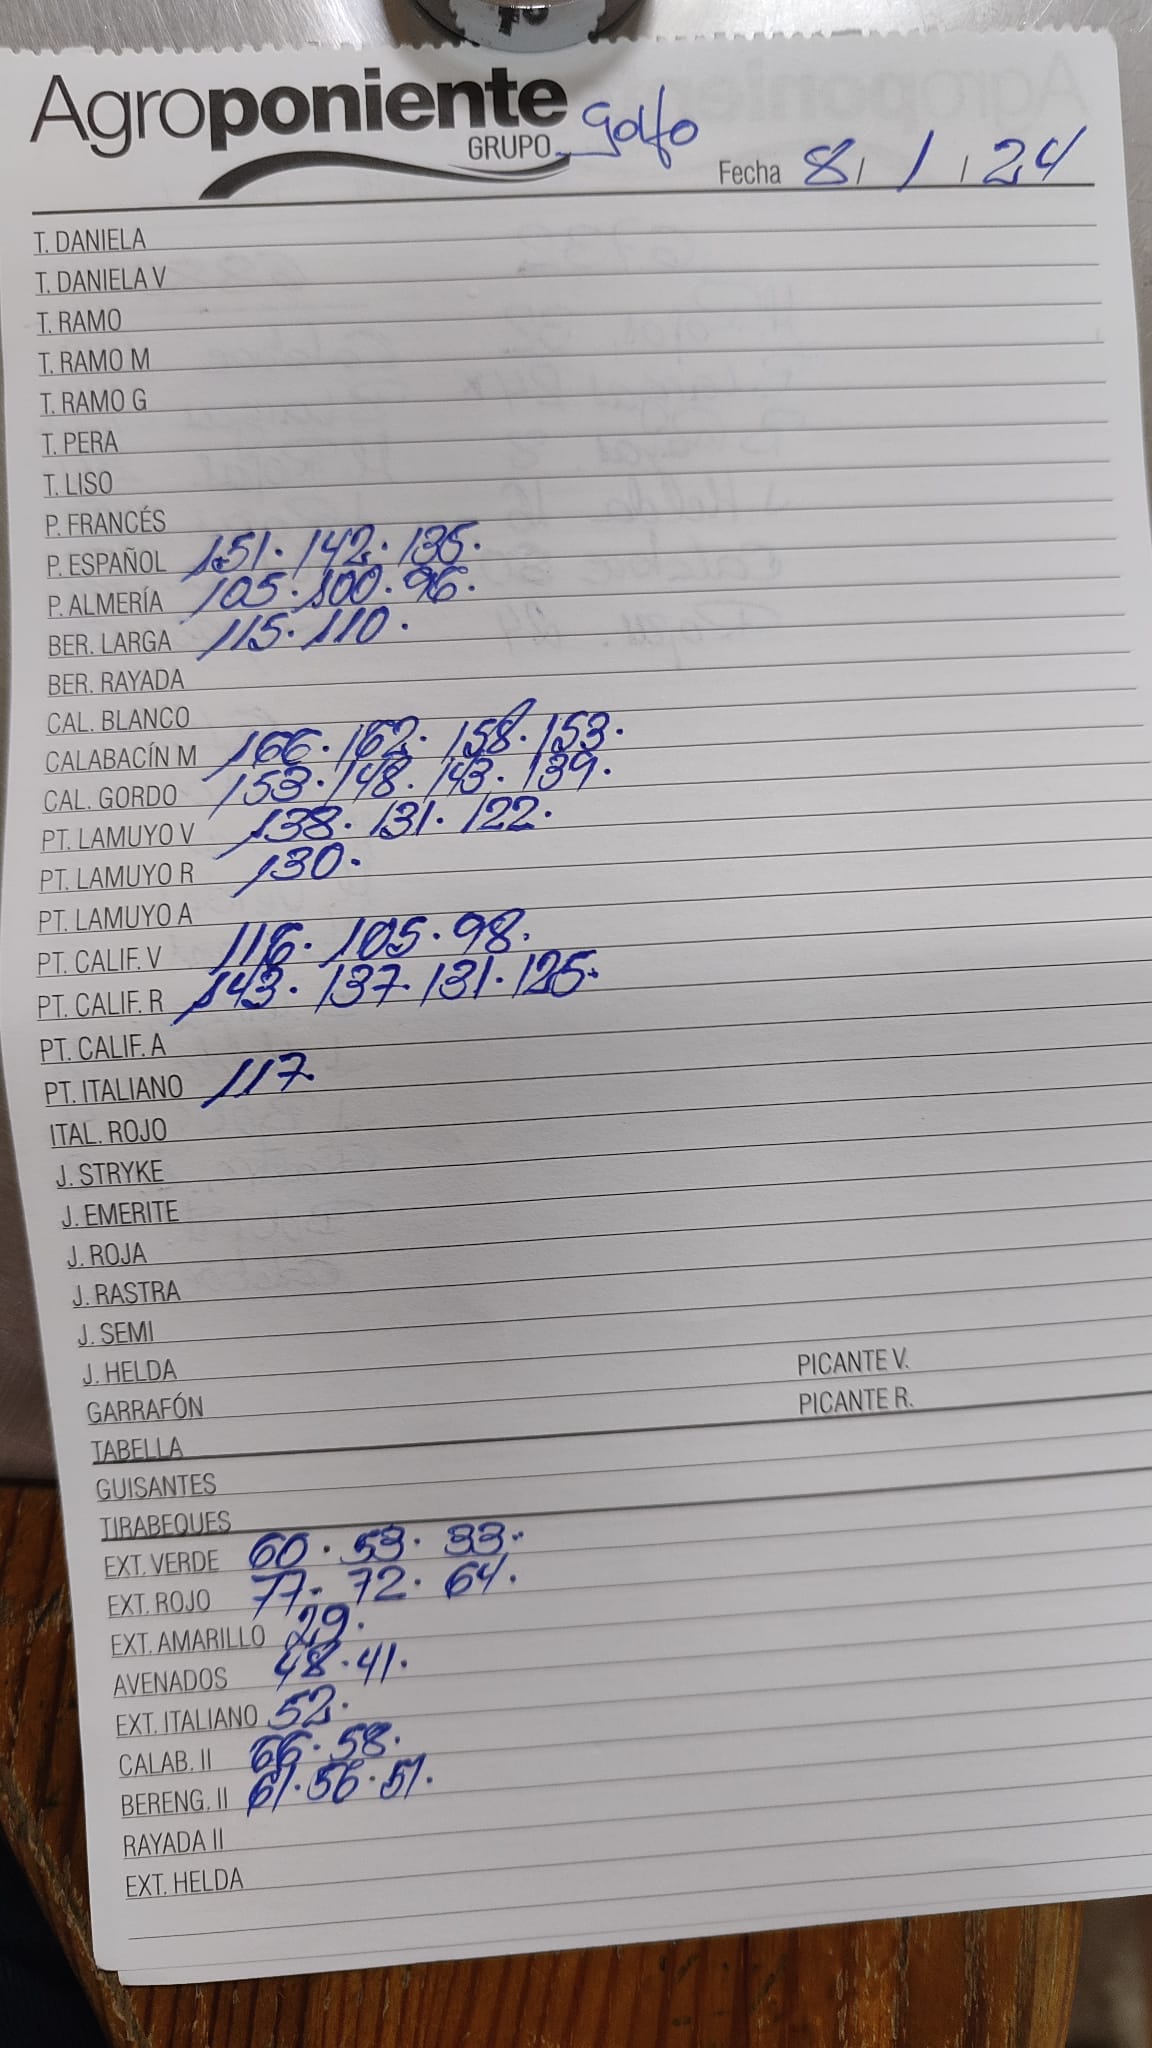 Agroponiente
GRUPO golfo
Fecha 8 / 1 / 24
T. DANIELA
T. DANIELA V
T. RAMO
T. RAMO M
T. RAMO G
T. PERA
T. LISO
P. FRANCÉS
P. ESPAÑOL 151. 142. 135.
P. ALMERÍA 105. 100. 96.
BER. LARGA 115. 110.
BER. RAYADA
CAL. BLANCO
CALABACÍN M 166. 162. 158. 153.
CAL. GORDO 153. 148. 143. 139.
PT. LAMUYO V 138. 131. 122.
PT. LAMUYO R 130.
PT. LAMUYO A
PT. CALIF. V 116. 105. 98.
PT. CALIF. R 143. 137. 131. 125.
PT. CALIF. A
PT. ITALIANO 117.
ITAL. ROJO
J. STRYKE
J. EMERITE
J. ROJA
J. RASTRA
J. SEMI
J. HELDA PICANTE V.
GARRAFÓN PICANTE R.
TABELLA
GUISANTES
TIRABEQUES
EXT. VERDE 60. 53. 33.
EXT. ROJO 77. 72. 64.
EXT. AMARILLO 29.
AVENADOS 48. 41.
EXT. ITALIANO 52.
CALAB. II 66. 58.
BERENG. II 61. 56. 51.
RAYADA II
EXT. HELDA